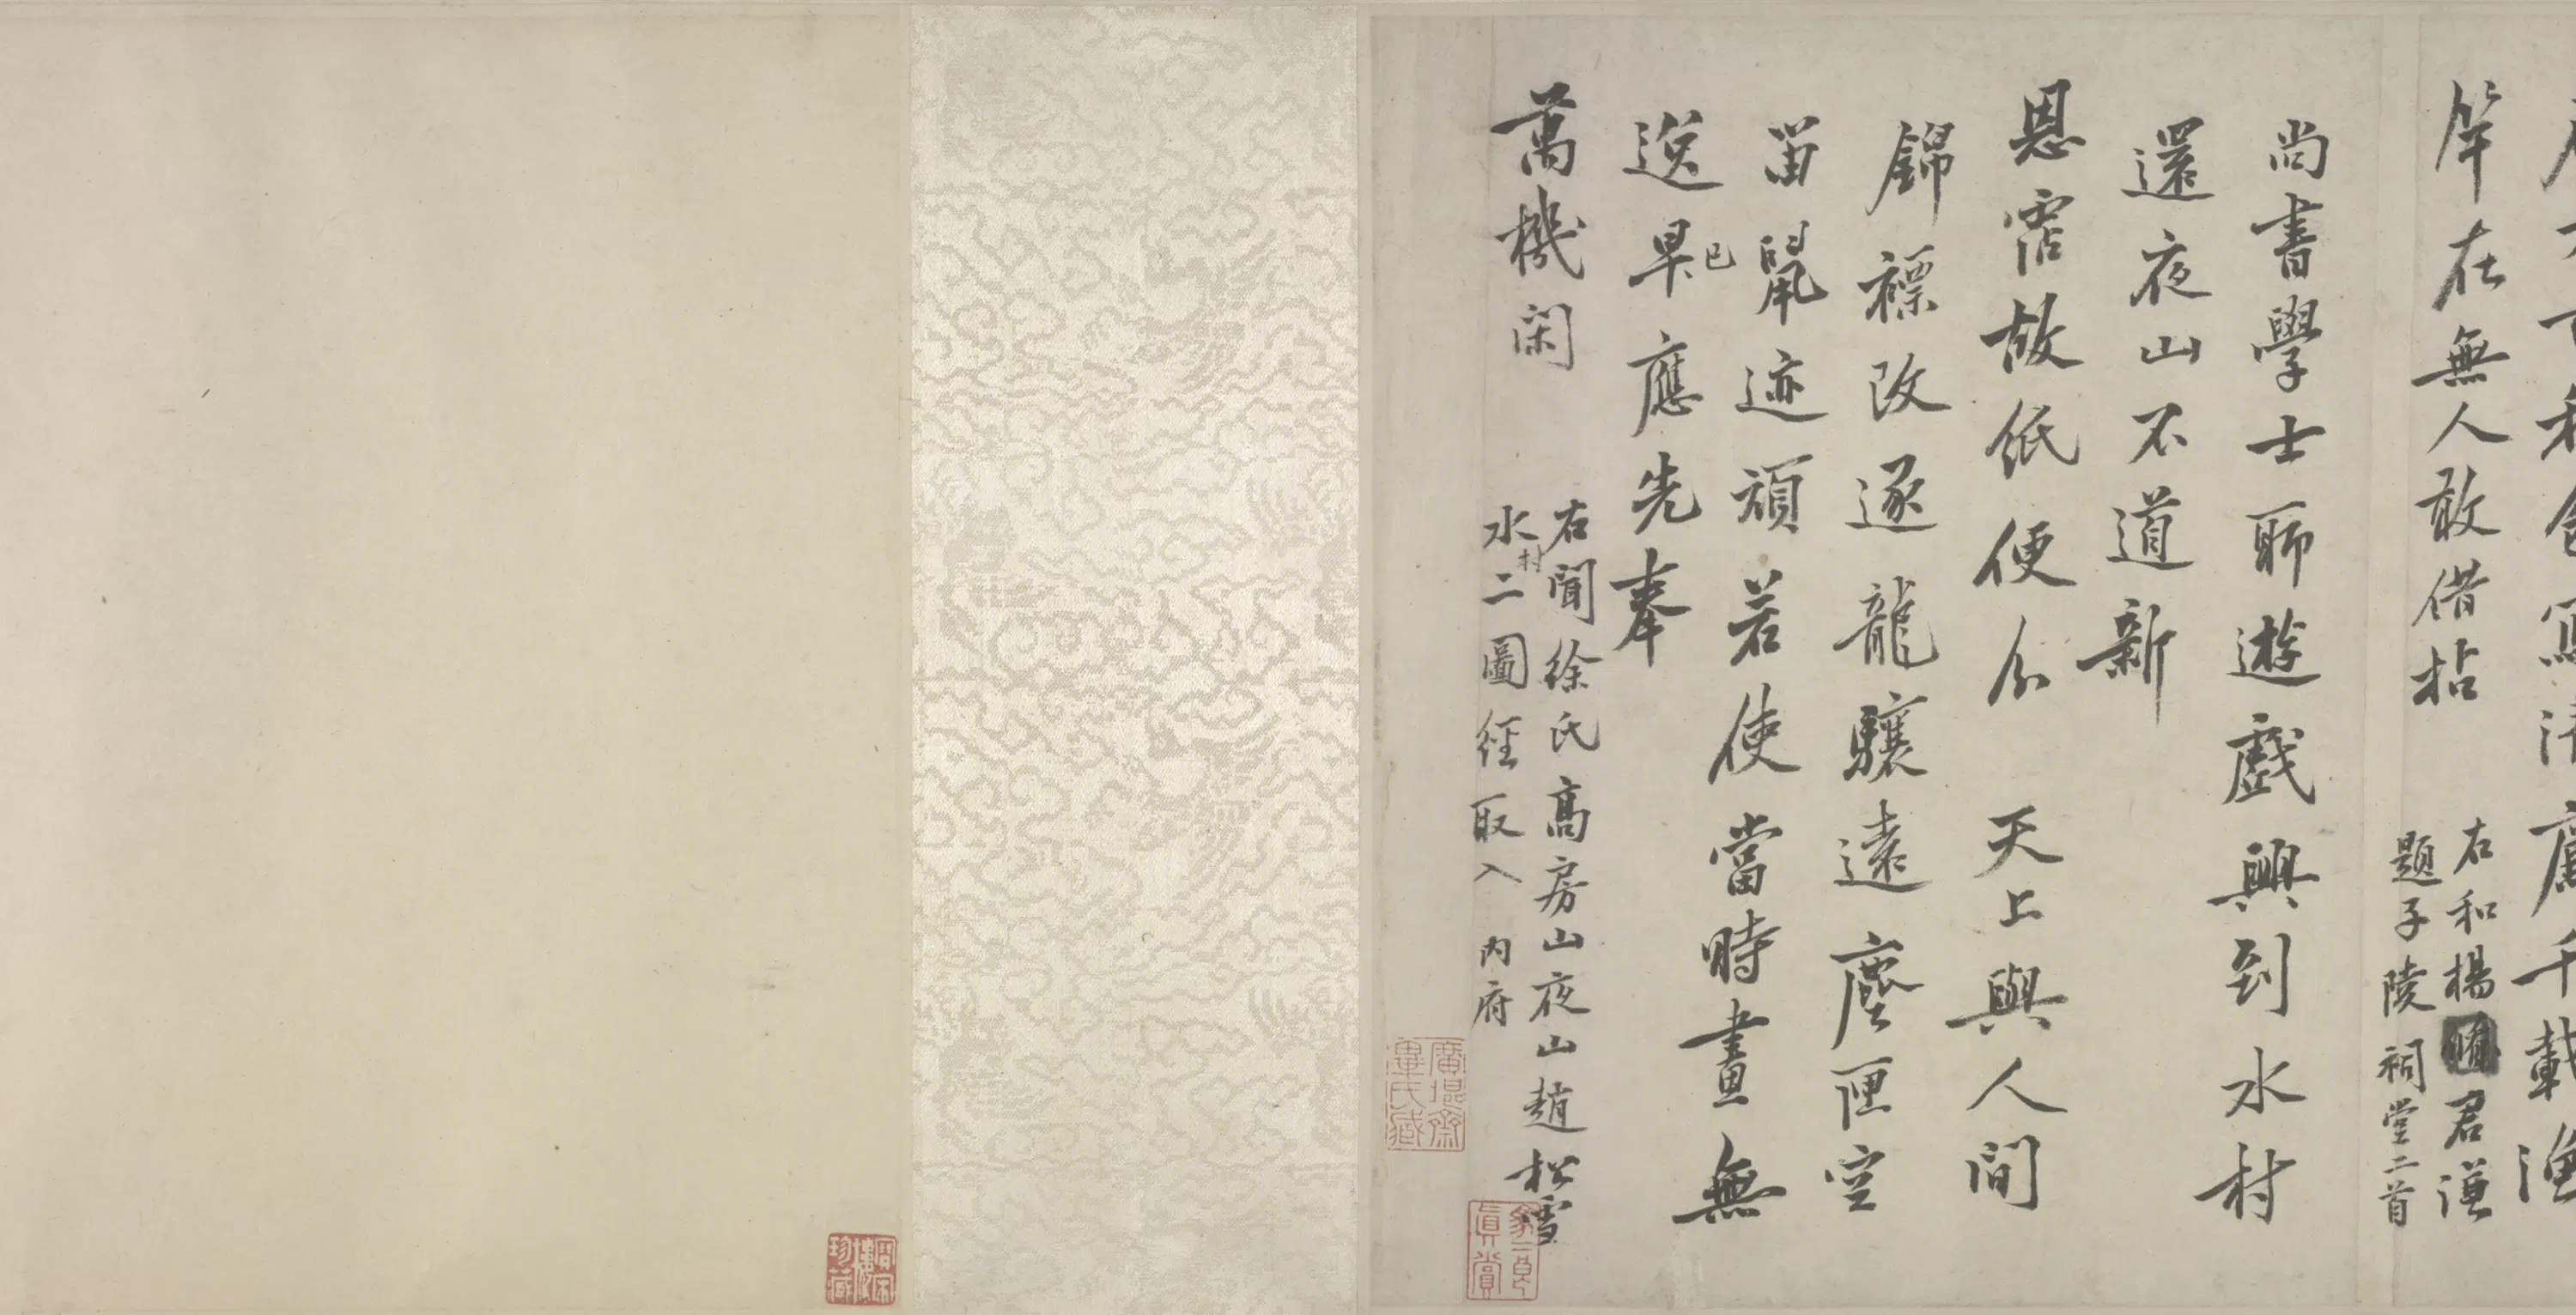 千載漁
竿在無人敢借拈
右和楊君謙
題子陵祠堂二首
尚書學士聊遊戲興到水村
還夜山不道新
恩霑故紙便分天上與人間
錦褾改逐龍驤遠塵匣空
留鼠迹頑若使當時畫無
逸早已應先奉
萬機閑
右聞徐氏高房山夜山趙松雪
水村二圖經取入內府
廣堪齋
畢氏藏
真賞
珍藏